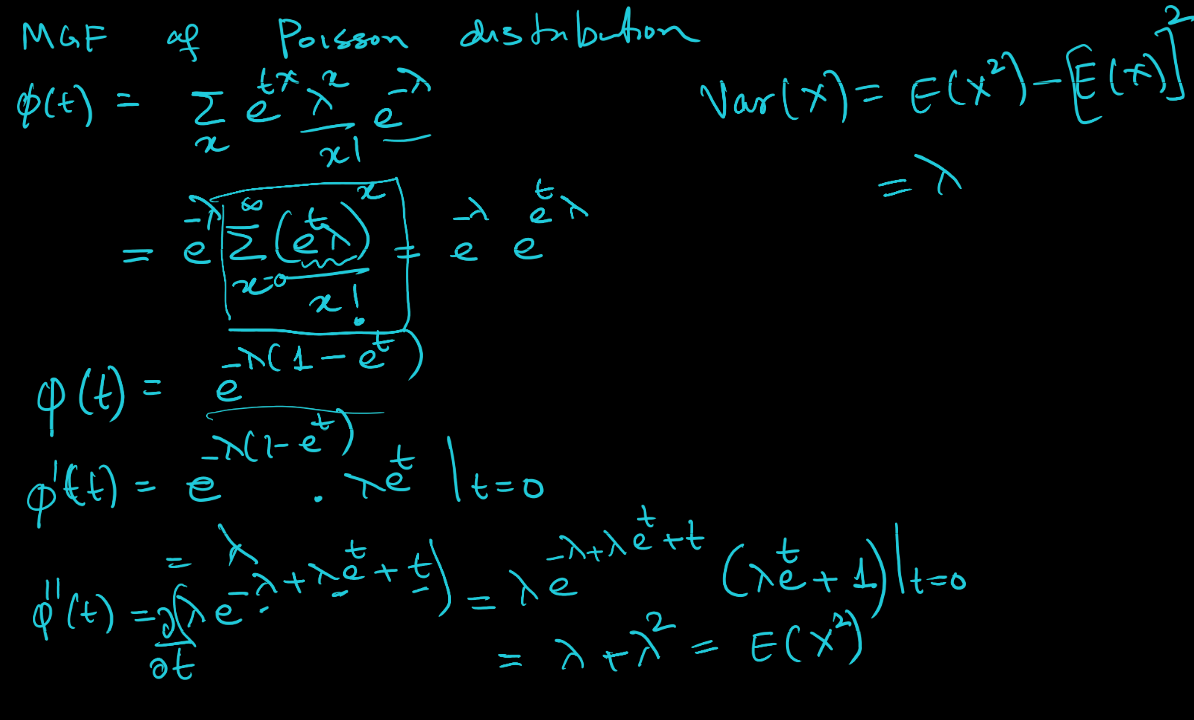 MGF of Poisson distribution
φ(t) = Σ_x e^{tx} λ^x/x! e^{-λ}
= e^{-λ} Σ_{x=0}^{∞} (e^t λ)^x / x! = e^{-λ} e^{e^t λ}
φ(t) = e^{-λ(1-e^t)}
φ'(t) = e^{-λ(1-e^t)} . λe^t |_{t=0}
= λ
φ''(t) = ∂/∂t (λ e^{-λ+λe^t+t}) = λ e^{-λ+λe^t+t} (λe^t + 1)|_{t=0}
= λ + λ^2 = E(X^2)
Var(X) = E(X^2) - [E(X)]^2
= λ